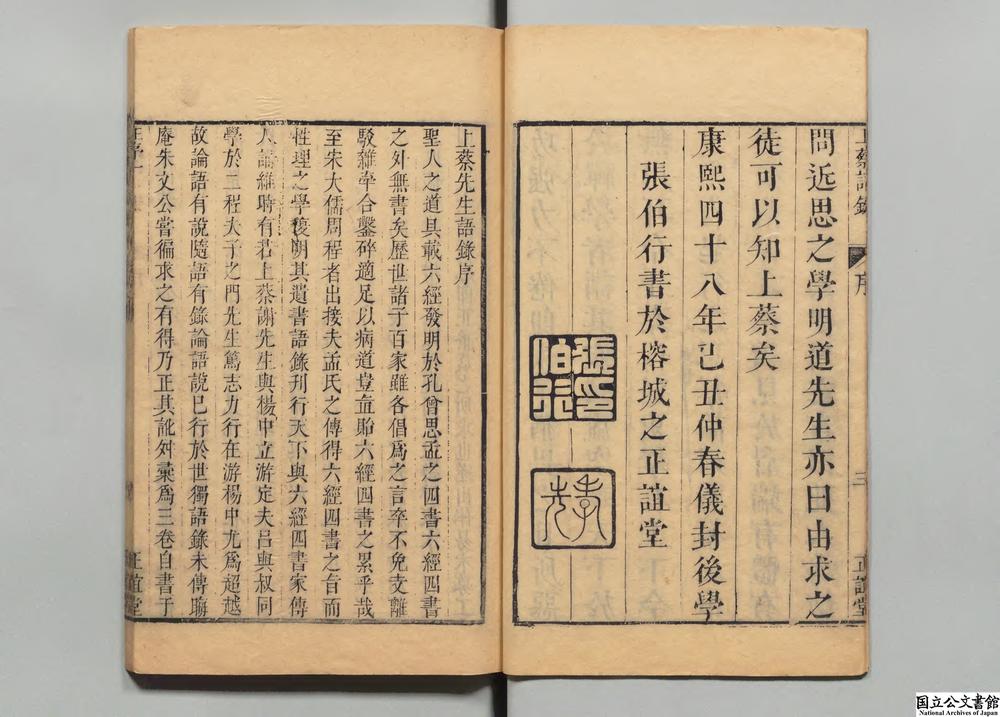 上蔡語錄 序 三 正誼堂
問近思之學明道先生亦曰由求之
徒可以知上蔡矣
康熙四十八年己丑仲春儀封後學
張伯行書於榕城之正誼堂
張伯行印
孝先
上蔡先生語錄序
聖人之道具載六經發明於孔曾思孟之四書六經四書
之外無書矣歷世諸子百家雖各倡爲之言卒不免支離
駁雜牽合鑿碎適足以病道豈直貽六經四書之累乎哉
至宋大儒周程者出接夫孟氏之傳得六經四書之旨而
性理之學復明其遺書語錄刊行天下與六經四書家傳
人誦維時有若上蔡謝先生與楊中立游定夫呂與叔同
學於二程夫子之門先生篤志力行在游楊中尤爲超越
故論語有說隨語有錄論語說已行於世獨語錄未傳晦
庵朱文公嘗徧求之有得乃正其訛舛彙爲三卷自書于
正誼堂
国立公文書館
National Archives of Japan